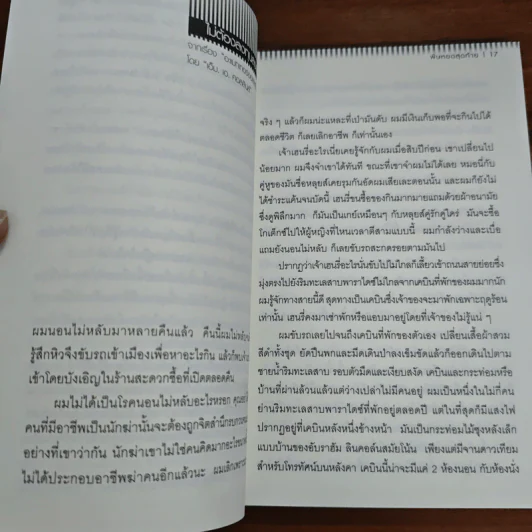 ไม่ต้องสงสัย
จากเรื่อง "
โดย "เอ็ม. เอ. คอลลินส์"
ผมนอนไม่หลับมาหลายคืนแล้ว คืนนี้ผมไม่
รู้สึกหิวจึงขับรถเข้าเมืองเพื่อหาอะไรกิน แล้วก็พบ
เข้าโดยบังเอิญในร้านสะดวกซื้อที่เปิดตลอดคืน
ผมไม่ได้เป็นโรคนอนไม่หลับอะไรหรอก คุณ
คนที่มีอาชีพเป็นนักฆ่านั้นจะต้องถูกจิตสำนึกรบกวน
อย่างที่เขาว่ากัน นักฆ่าเขาไม่ใช่คนคิดมากอะไร
ไม่ได้ประกอบอาชีพฆ่าคนอีกแล้วนะ ผมเลิก
ฝันหยดสุดท้าย | 17
จริง ๆ แล้วก็ผมน่ะแหละที่เป๋ามันคับ ผมมีเงินเก็บพอที่จะกินไปได้
ตลอดชีวิต ก็เลยเลิกอาชีพ ก็เท่านั้นเอง
เจ้าเฮนรี่อะไรเนี่ยเคยรู้จักกับผมเมื่อสิบปีก่อน เขาเปลี่ยนไป
น้อยมาก ผมจึงจำเขาได้ทันที ขณะที่เขาจำผมไม่ได้เลย หมอนี่กับ
คู่หูของมันชื่อหลุยส์เคยรุมกันอัดผมเสียเละตอนนั้น และผมก็ยังไม่
ได้ชำระแค้นจนบัดนี้ เฮนรี่ขนซื้อของกินมากมายแถมด้วยผ้าอนามัย
ซึ่งดูพิลึกมาก ก็มันเป็นเกย์เหมือนๆ กับหลุยส์คู่รักคู่ใคร่ มันจะซื้อ
โกเต็กซ์ไปให้ผู้หญิงที่ไหนเวลาตีสามแบบนี้ ผมกำลังว่างและเบื่อ
แถมยังนอนไม่หลับ ก็เลยขับรถสะกดรอยตามมันไป
ปรากฏว่าเจ้าเฮนรี่อะไรนั่นขับไปไม่ไกลก็เลี้ยวเข้าถนนสายย่อยซึ่ง
มุ่งตรงไปยังริมทะเลสาบพาราไดซ์ไม่ไกลจากเคบินที่พักของผมมากนัก
ผมรู้จักทางสายนี้ดี สุดทางเป็นเคบินซึ่งเจ้าของจะมาพักเฉพาะฤดูร้อน
เท่านั้น เฮนรี่คงมาเช่าพักหรือแอบมาอยู่โดยที่เจ้าของไม่รู้แน่ ๆ
ผมขับรถเลยไปจนถึงเคบินที่พักของตัวเอง เปลี่ยนเสื้อผ้าสวม
สีดำทั้งชุด ยัดปืนพกและมีดเดินป่าลงเข็มขัดแล้วก็ออกเดินไปตาม
ชายน้ำริมทะเลสาบ รอบตัวมืดและเงียบสงัด เคบินและกระท่อมหรือ
บ้านที่ผ่านล้วนแล้วแต่ว่างเปล่าไม่มีคนอยู่ ผมเป็นหนึ่งในไม่กี่คน
ย่านริมทะเลสาบพาราไดซ์ที่พักอยู่ตลอดปี แต่ในที่สุดก็มีแสงไฟ
ปรากฏอยู่ที่เคบินหลังหนึ่งข้างหน้า มันเป็นกระท่อมไม้ซุงหลังเล็ก
แบบบ้านของอับราฮัม ลินคอล์นสมัยโน้น เพียงแต่มีจานดาวเทียม
สำหรับโทรทัศน์บนหลังคา เคบินนี้น่าจะมีแค่ 2 ห้องนอน กับห้องนั่ง